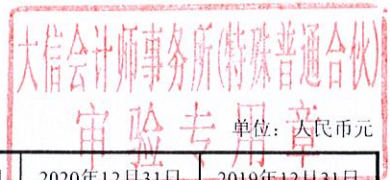 大信会计师事务所(特殊普通合伙)
审验专用章
单位：人民币元
2020年12月31日 2019年12月31日